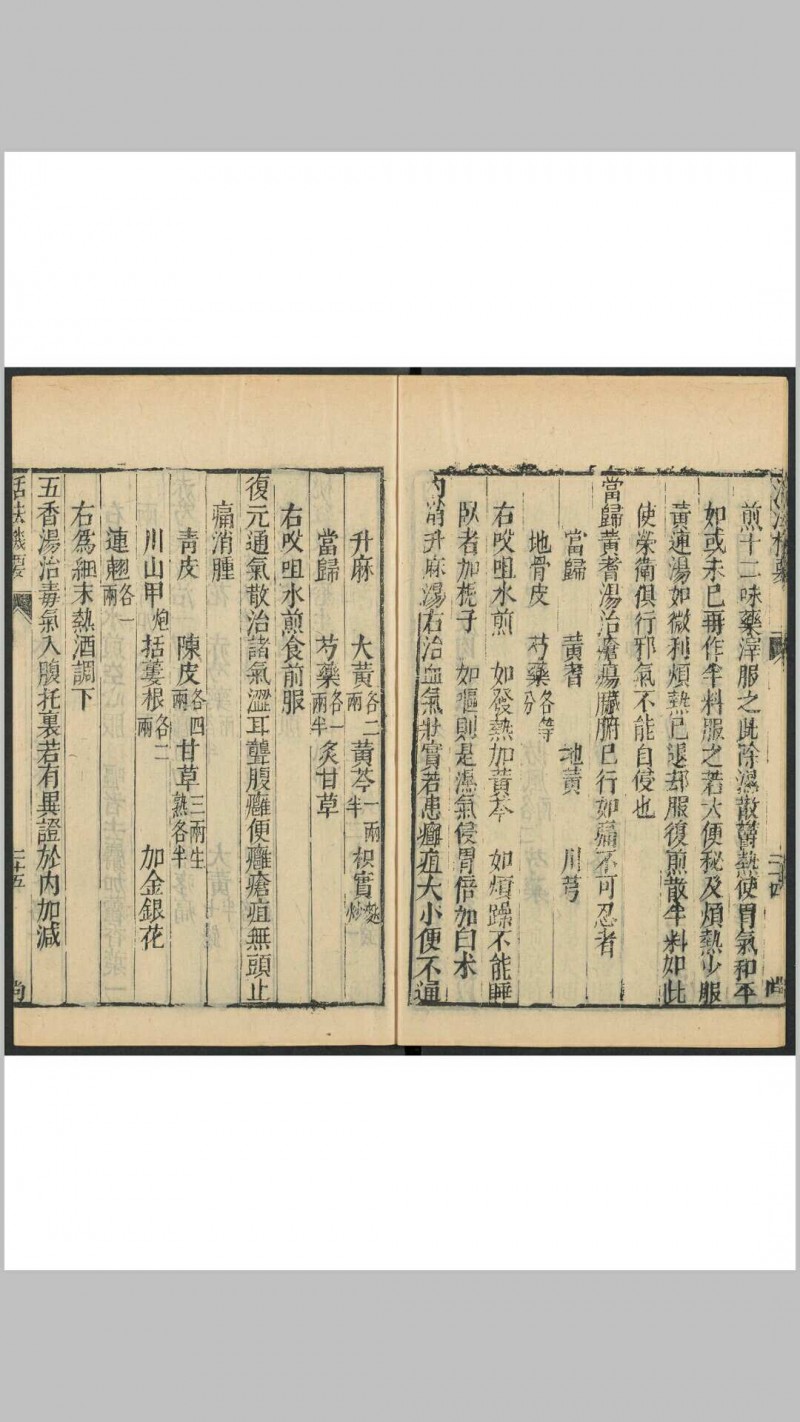 煎十二味藥滓服之此除濕散鬱熱使胃氣和平
如或未已再作半料服之若大便秘及煩熱少服
黃連湯如微利煩熱已退却服復煎散半料如此
使榮衛俱行邪氣不能自侵也
當歸黃耆湯治瘡瘍臟腑已行如痛不可忍者
當歸 黃耆 地黃 川芎
地骨皮 芍藥各等分
右㕮咀水煎 如發熱加黃芩 如煩躁不能睡
臥者加梔子 如嘔則是濕氣侵胃倍加白朮
內消升麻湯右治血氣壯實若患癰疽大小便不通
升麻 大黃各二兩 黃芩一兩半 枳實麩炒
當歸 芍藥各一兩半 炙甘草
右㕮咀水煎食前服
復元通氣散治諸氣澀耳聾腹癰便癰瘡疽無頭止
痛消腫
靑皮 陳皮各四兩 甘草三兩生熟各半
川山甲炮 括蔞根各二兩 加金銀花
連翹各一兩
右爲細末熱酒調下
五香湯治毒氣入腹托裏若有異證於內加減
活法機要 二十五